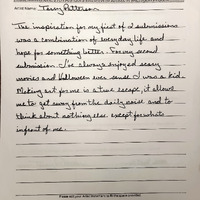 Artist Name: Terry Peterson
The inspiration for my first of 2 submissions
was a combination of everyday life and
hope for something better. For my second
submission I've always enjoyed scary
movies and Halloween ever since I was a kid.
Making art for me is a true escape, it allows
me to get away from the daily noise and to
think about nothing else except for whats
infront of me.